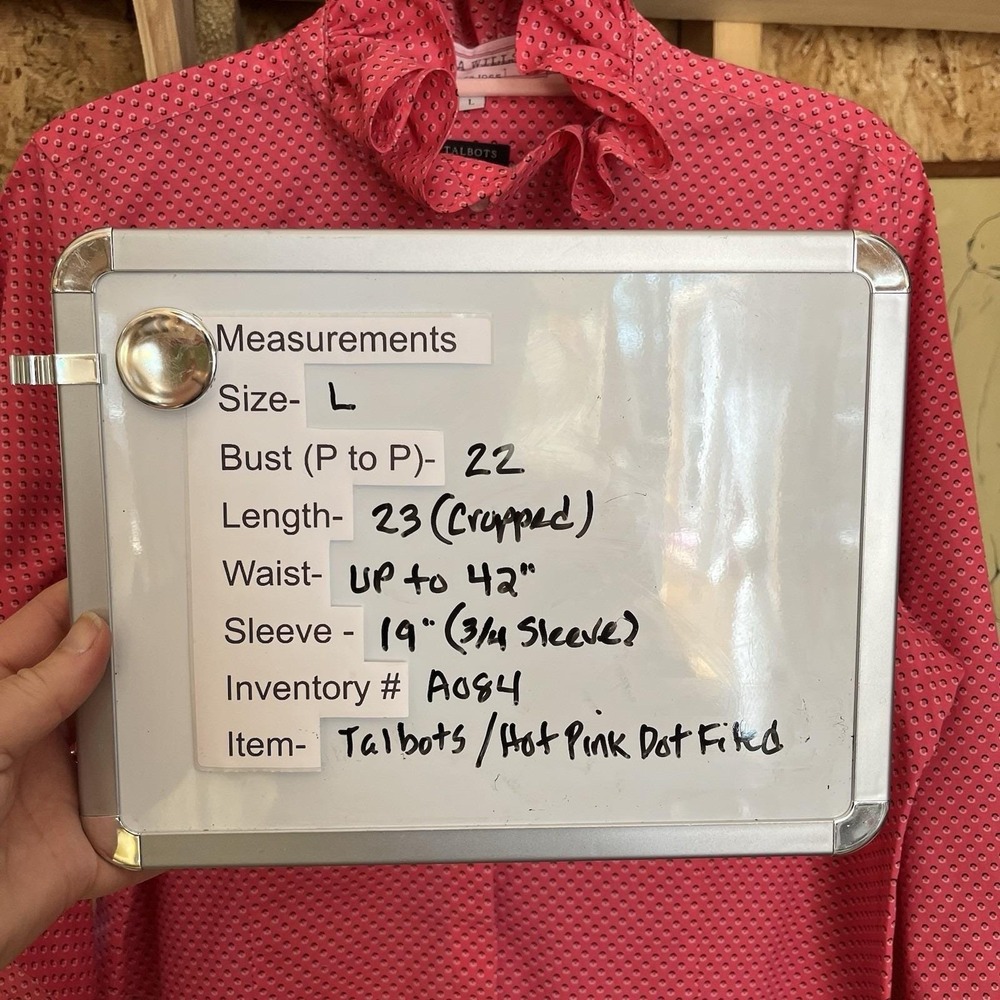 A WILL
L
TALBOTS
Measurements
Size- L
Bust (P to P)- 22
Length- 23 (Cropped)
Waist- UP to 42"
Sleeve - 19" (3/4 Sleeve)
Inventory # A084
Item- Talbots / Hot Pink Dot Fitted